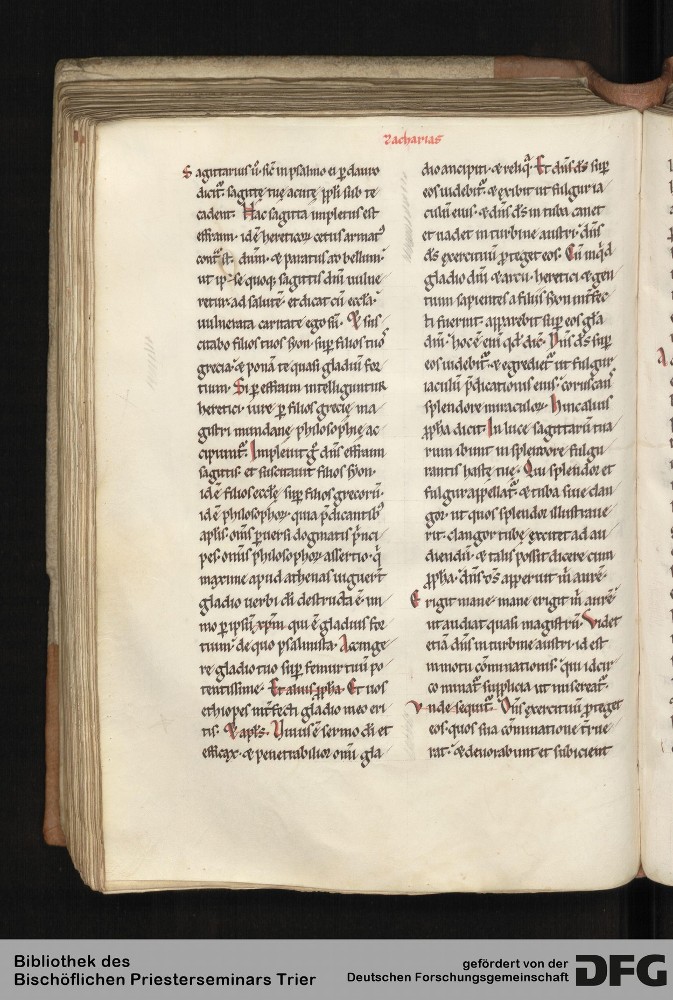 Zacharias
Sagittarius ū. sic̄ in psalmo ei ꝑ dauid
dicit̄. sagittę tuę acutę ppl̄i sub te
cadent. Hac sagitta impletus est
effraim. id ē hereticoꝝ cetus armat᷒
cont̄ st̄. dn̄m. & paratus ad bellum.
ut ipse quoq; sagittis dn̄i uulne
retur ad salutē. et dicat cū eccl̄a.
uulnerata caritate ego sū. Et sus
citabo filios tuos syon. suꝑ filios tuos
grecia. & ponā te quasi gladiū for
tium. Si ꝑ effraim intelliguntur
heretici. iure ꝑ filios grecię ma
gistri mundanę philosophię ac
cipiunt̄. Impleuit g̊ dn̄s effraim
sagittis. et suscitauit filios syon.
id ē filios eccl̄ę suꝑ filios grecorū.
id ē philosophoꝝ. quia p̄dicantib᷒
apl̄is. om̄is ꝑuersi dogmatis p̄nci
pes. om̄is philosophoꝝ assertio. q̄
maxime apud athenas uiguert̄
gladio uerbi dī destructa ē. im
mo ꝑ ipsū xp̄m qui ē gladius for
tium. de quo psalmista. Accinge
re gladio tuo suꝑ femur tuū po
tentissime. Et alius ꝓpha. Et uos
ethiopes int̄fecti gladio meo eri
tis. Et apl̄s. Viuus ē sermo dī et
efficax. & penetrabilior omī gla
dio ancipiti. & reliq̄. Et dn̄s ds̄ suꝑ
eos uidebit̄. & exibit ut fulgur ia
culū eius. & dn̄s ds̄ in tuba canet
et uadet in turbine austri. dn̄s
ds̄ exercituū ꝓteget eos. Cū inq̄d
gladio dn̄i & arcu. heretici & gen
tium sapientes a filiis syon int̄fec
ti fuerint. apparebit suꝑ eos gla
diū. hoc ē eni qd̄ dic̄. Dn̄s ds̄ suꝑ
eos uidebit̄. & egrediet̄ ut fulgur
iaculū p̄dicationis eius. coruscans
splendore miraculoꝝ. Hinc alius
ꝓpha dicit. In luce sagittarū tua
rum ibunt in splendore fulgu
rantis hastę tuę. Qui splendor et
fulgur appellat̄. & tuba siue clan
gor. ut quos splendor illustraue
rit. clangor tubę excitet ad au
diendū. & talis possit dicere cum
ꝓpha. dn̄s ds̄ apperuit m̄ aurē.
Erigit mane. mane erigit m̄ aurē
ut audiat quasi magistrū. Videt
etiā dn̄s in turbine austri. id est
in motu cōminationis. qui idcir
co minat̄ supplicia ut misereat̄.
Vnde sequit̄. Dn̄s exercituū ꝓteget
eos. quos sua cōminatione true
rat. & deuorabunt et subicient
Bibliothek des
Bischöflichen Priesterseminars Trier
gefördert von der
Deutschen Forschungsgemeinschaft
DFG